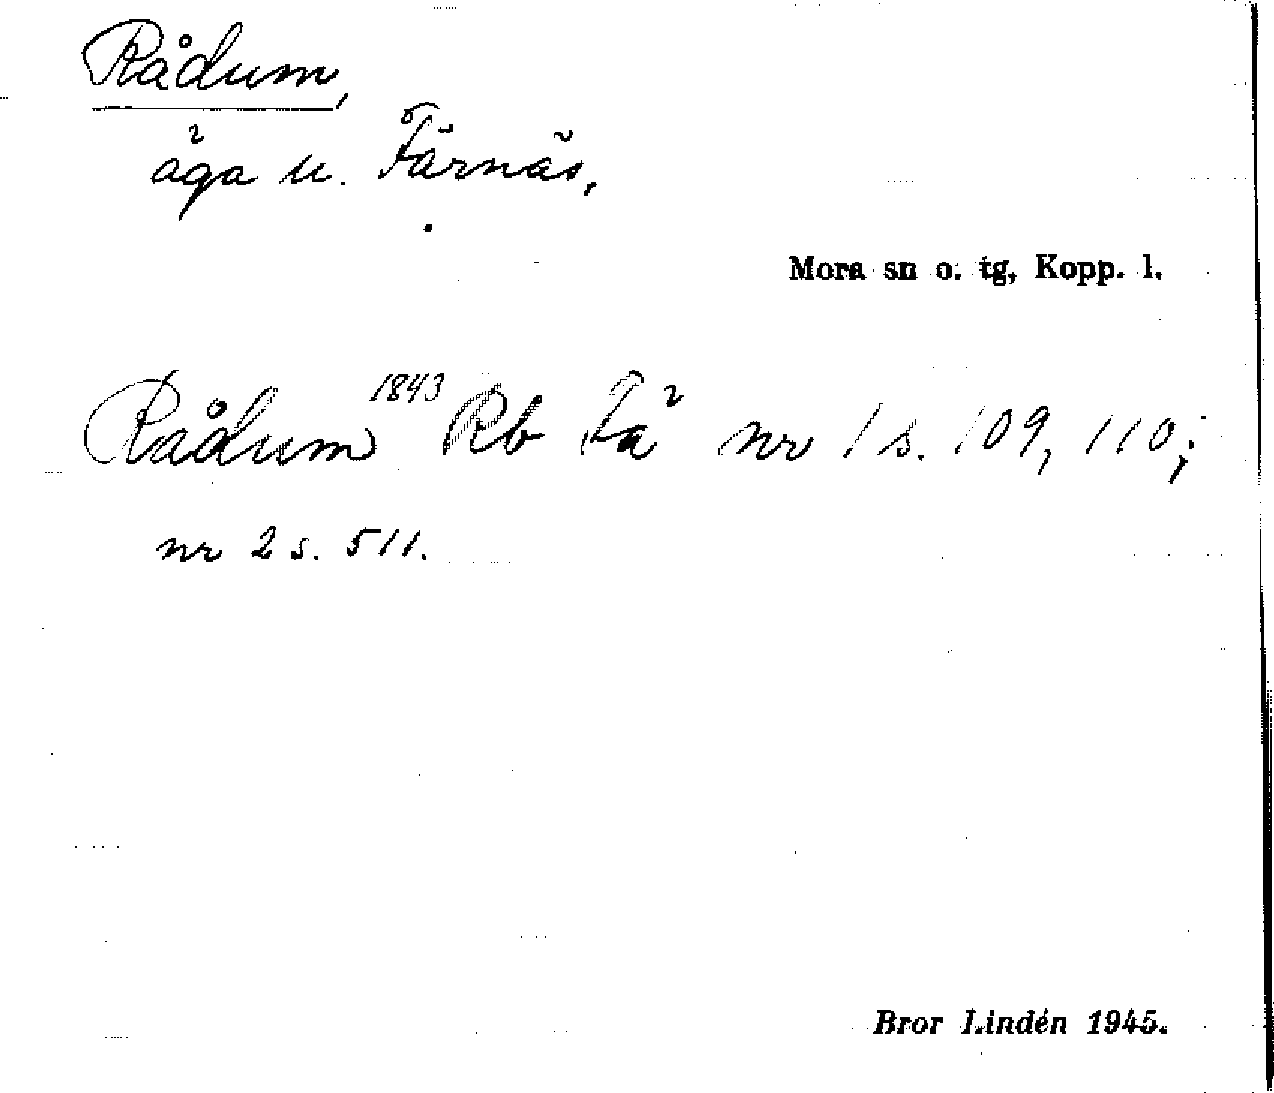 Rådum,
äga u. Färnäs,
Mora sn o. tg, Kopp. l.
Rådum 1843 Rb Fä nr 1 s. 109, 110;
nr 2 s. 511.
Bror Lindén 1945.